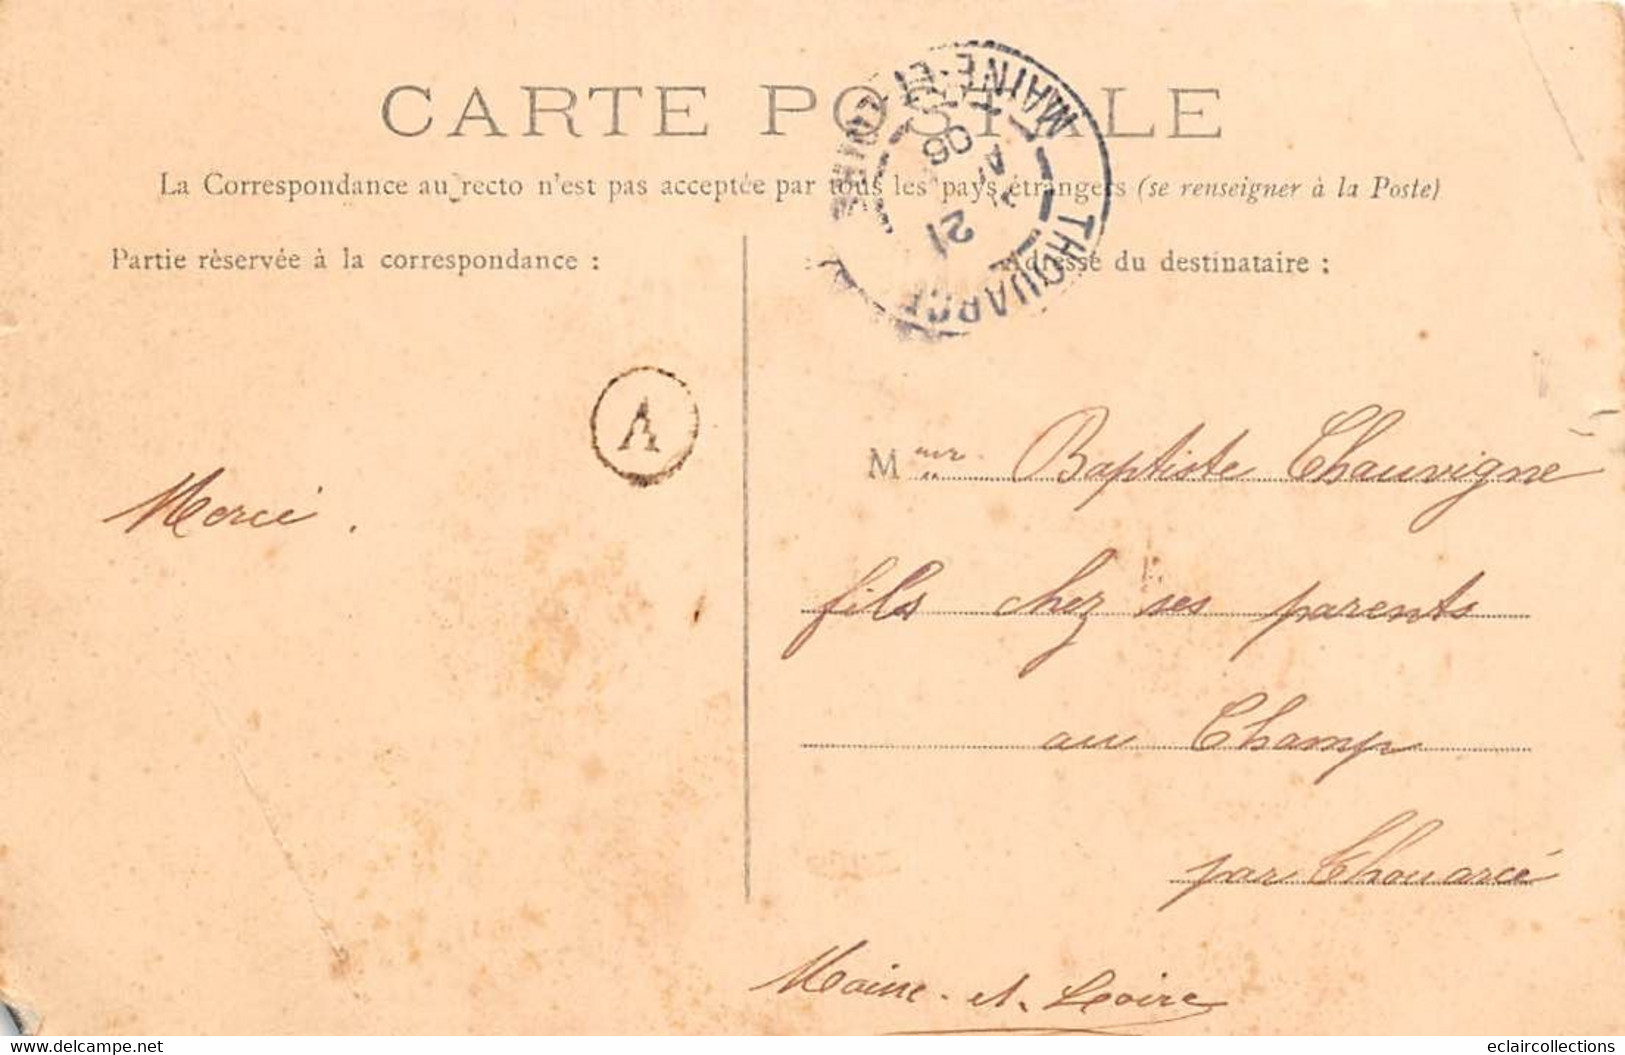 CARTE POSTALE
La Correspondance au recto n'est pas acceptée par tous les pays étrangers (se renseigner à la Poste)
Partie rèservée à la correspondance :
Adresse du destinataire :
THOUARCE
MAINE-ET-LOIRE
21
06
A
Merci.
M Baptiste Chauvigné
fils chez ses parents
au Champ
par Thouarcé
Maine-et-Loire
delcampe.net
eclaircollections